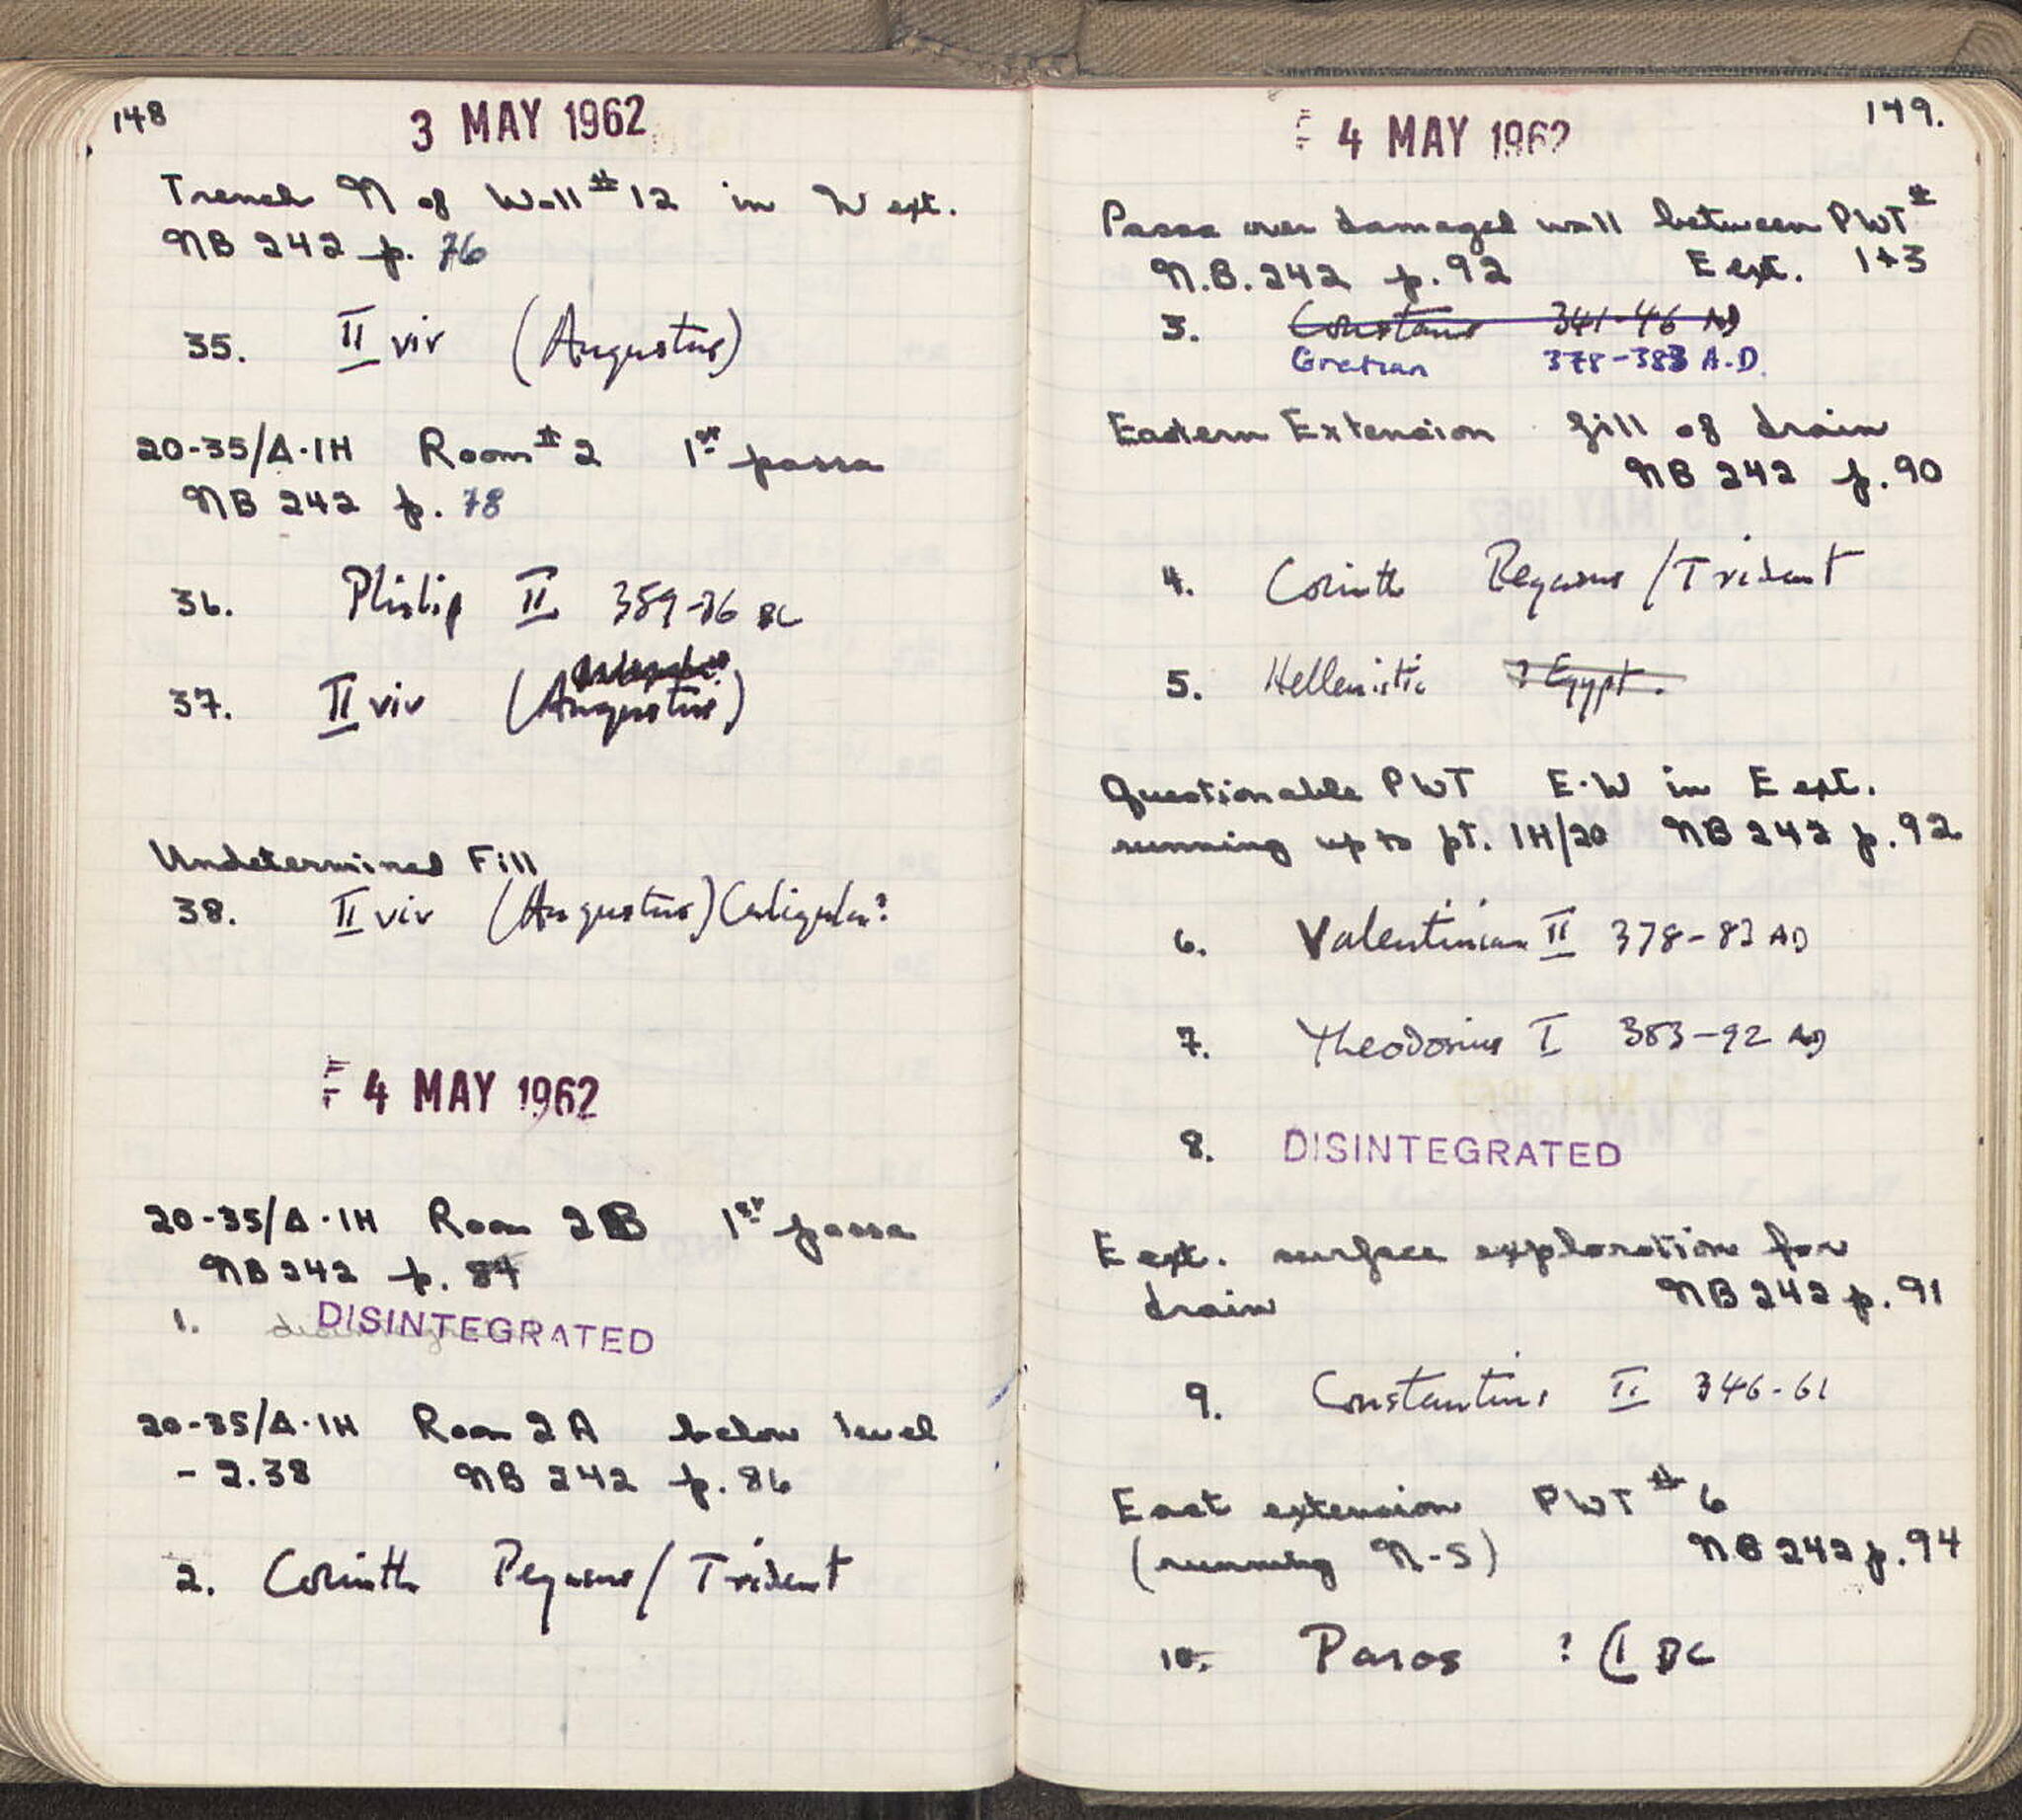 148
3 MAY 1962
Trench N of Wall #12 in W ext.
NB 242 p. 76
35. II vir (Augustus)
20-35/Δ-IH Room #2 1st passa
NB 242 p. 78
36. Philip II 359-36 BC
37. II vir (Augustus)
Undetermined Fill
38. II vir (Augustus) Caligula?
4 MAY 1962
20-35/Δ-IH Room 2B 1st passa
NB 242 p. 84
1. DISINTEGRATED
20-35/Δ-IH Room 2A below level
-2.38 NB 242 p. 86
2. Corinth Pegasus/Trident
149.
4 MAY 1962
Passa over damaged wall between PWT #
N.B. 242 p. 92 E ext. 1+3
3. Constans 341-46 AD
Gratian 378-383 A.D.
Eastern Extension fill of drain
NB 242 p. 90
4. Corinth Pegasus/Trident
5. Hellenistic ? Egypt.
Questionable PWT E-W in E ext.
running up to pt. IH/20 NB 242 p. 92
6. Valentinian II 378-83 AD
7. Theodosius I 383-92 AD
8. DISINTEGRATED
E ext. surface exploration for
drain NB 242 p. 91
9. Constantius II 346-61
East extension PWT #6
(running N-S) NB 242 p. 94
10. Paros ? (I BC